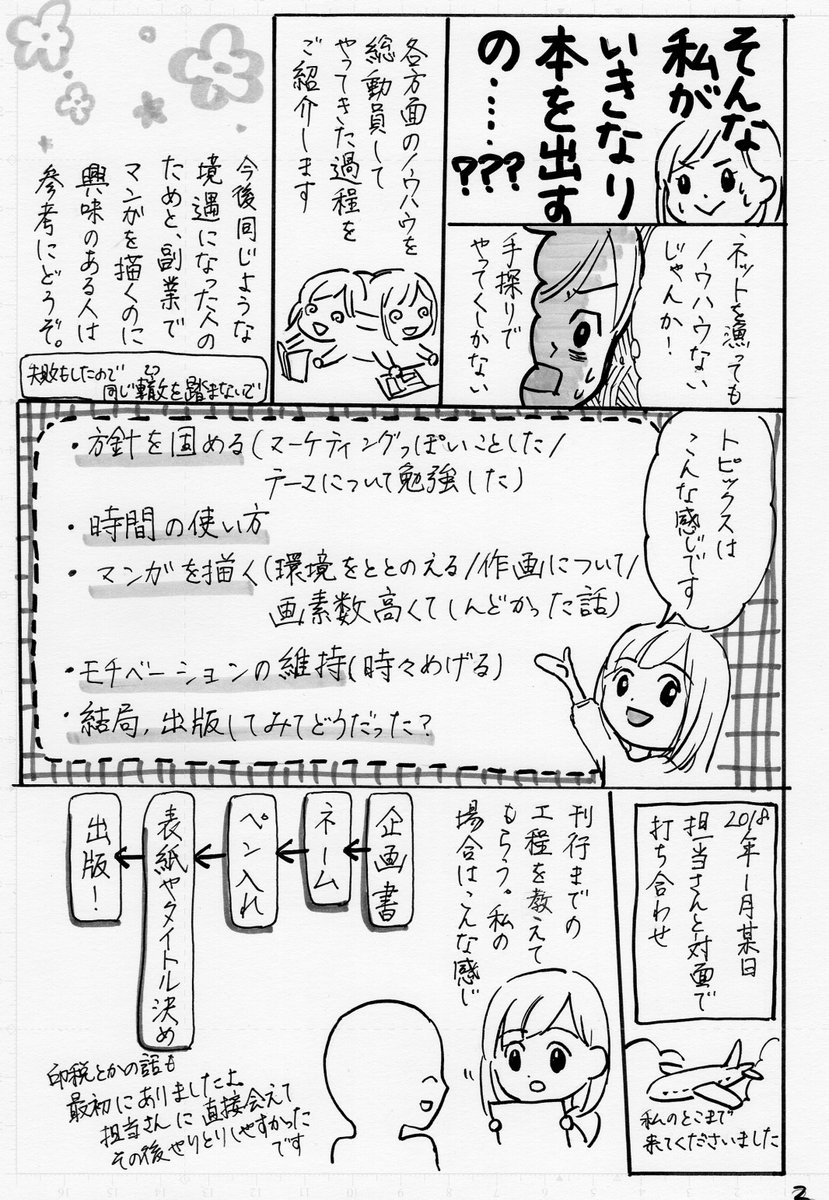 そんな
私が
いきなり
本を出す
の……
???
ネットを漁っても
ノウハウない
じゃんか!
手探りで
やってくしかない
各方面のノウハウを
総動員して
やってきた過程を
ご紹介します
今後同じような
境遇になった人の
ためと、副業で
マンガを描くのに
興味のある人は
参考にどうぞ。
失敗もしたので
同じ轍を踏まないで
トピックスは
こんな感じです
・方針を固める(マーケティングっぽいことした/
テーマについて勉強した)
・時間の使い方
・マンガを描く(環境をととのえる/作画について/
画素数高くてしんどかった話)
・モチベーションの維持(時々めげる)
・結局,出版してみてどうだった?
2018年1月某日
担当さんと対面で
打ち合わせ
私のとこまで
来てくださいました
刊行までの
工程を教えて
もらう。私の
場合はこんな感じ
企画書
ネーム
ペン入れ
表紙やタイトル決め
出版!
印税とかの話も
最初にありましたよ
担当さんに直接会えて
その後やりとりしやすかった
です
2